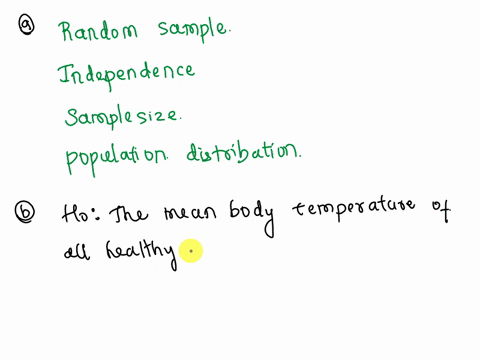 ⓐ Random sample.
Independence
Samplesize.
population distribation.
ⓑ Ho: The mean body temperature of
all healthy